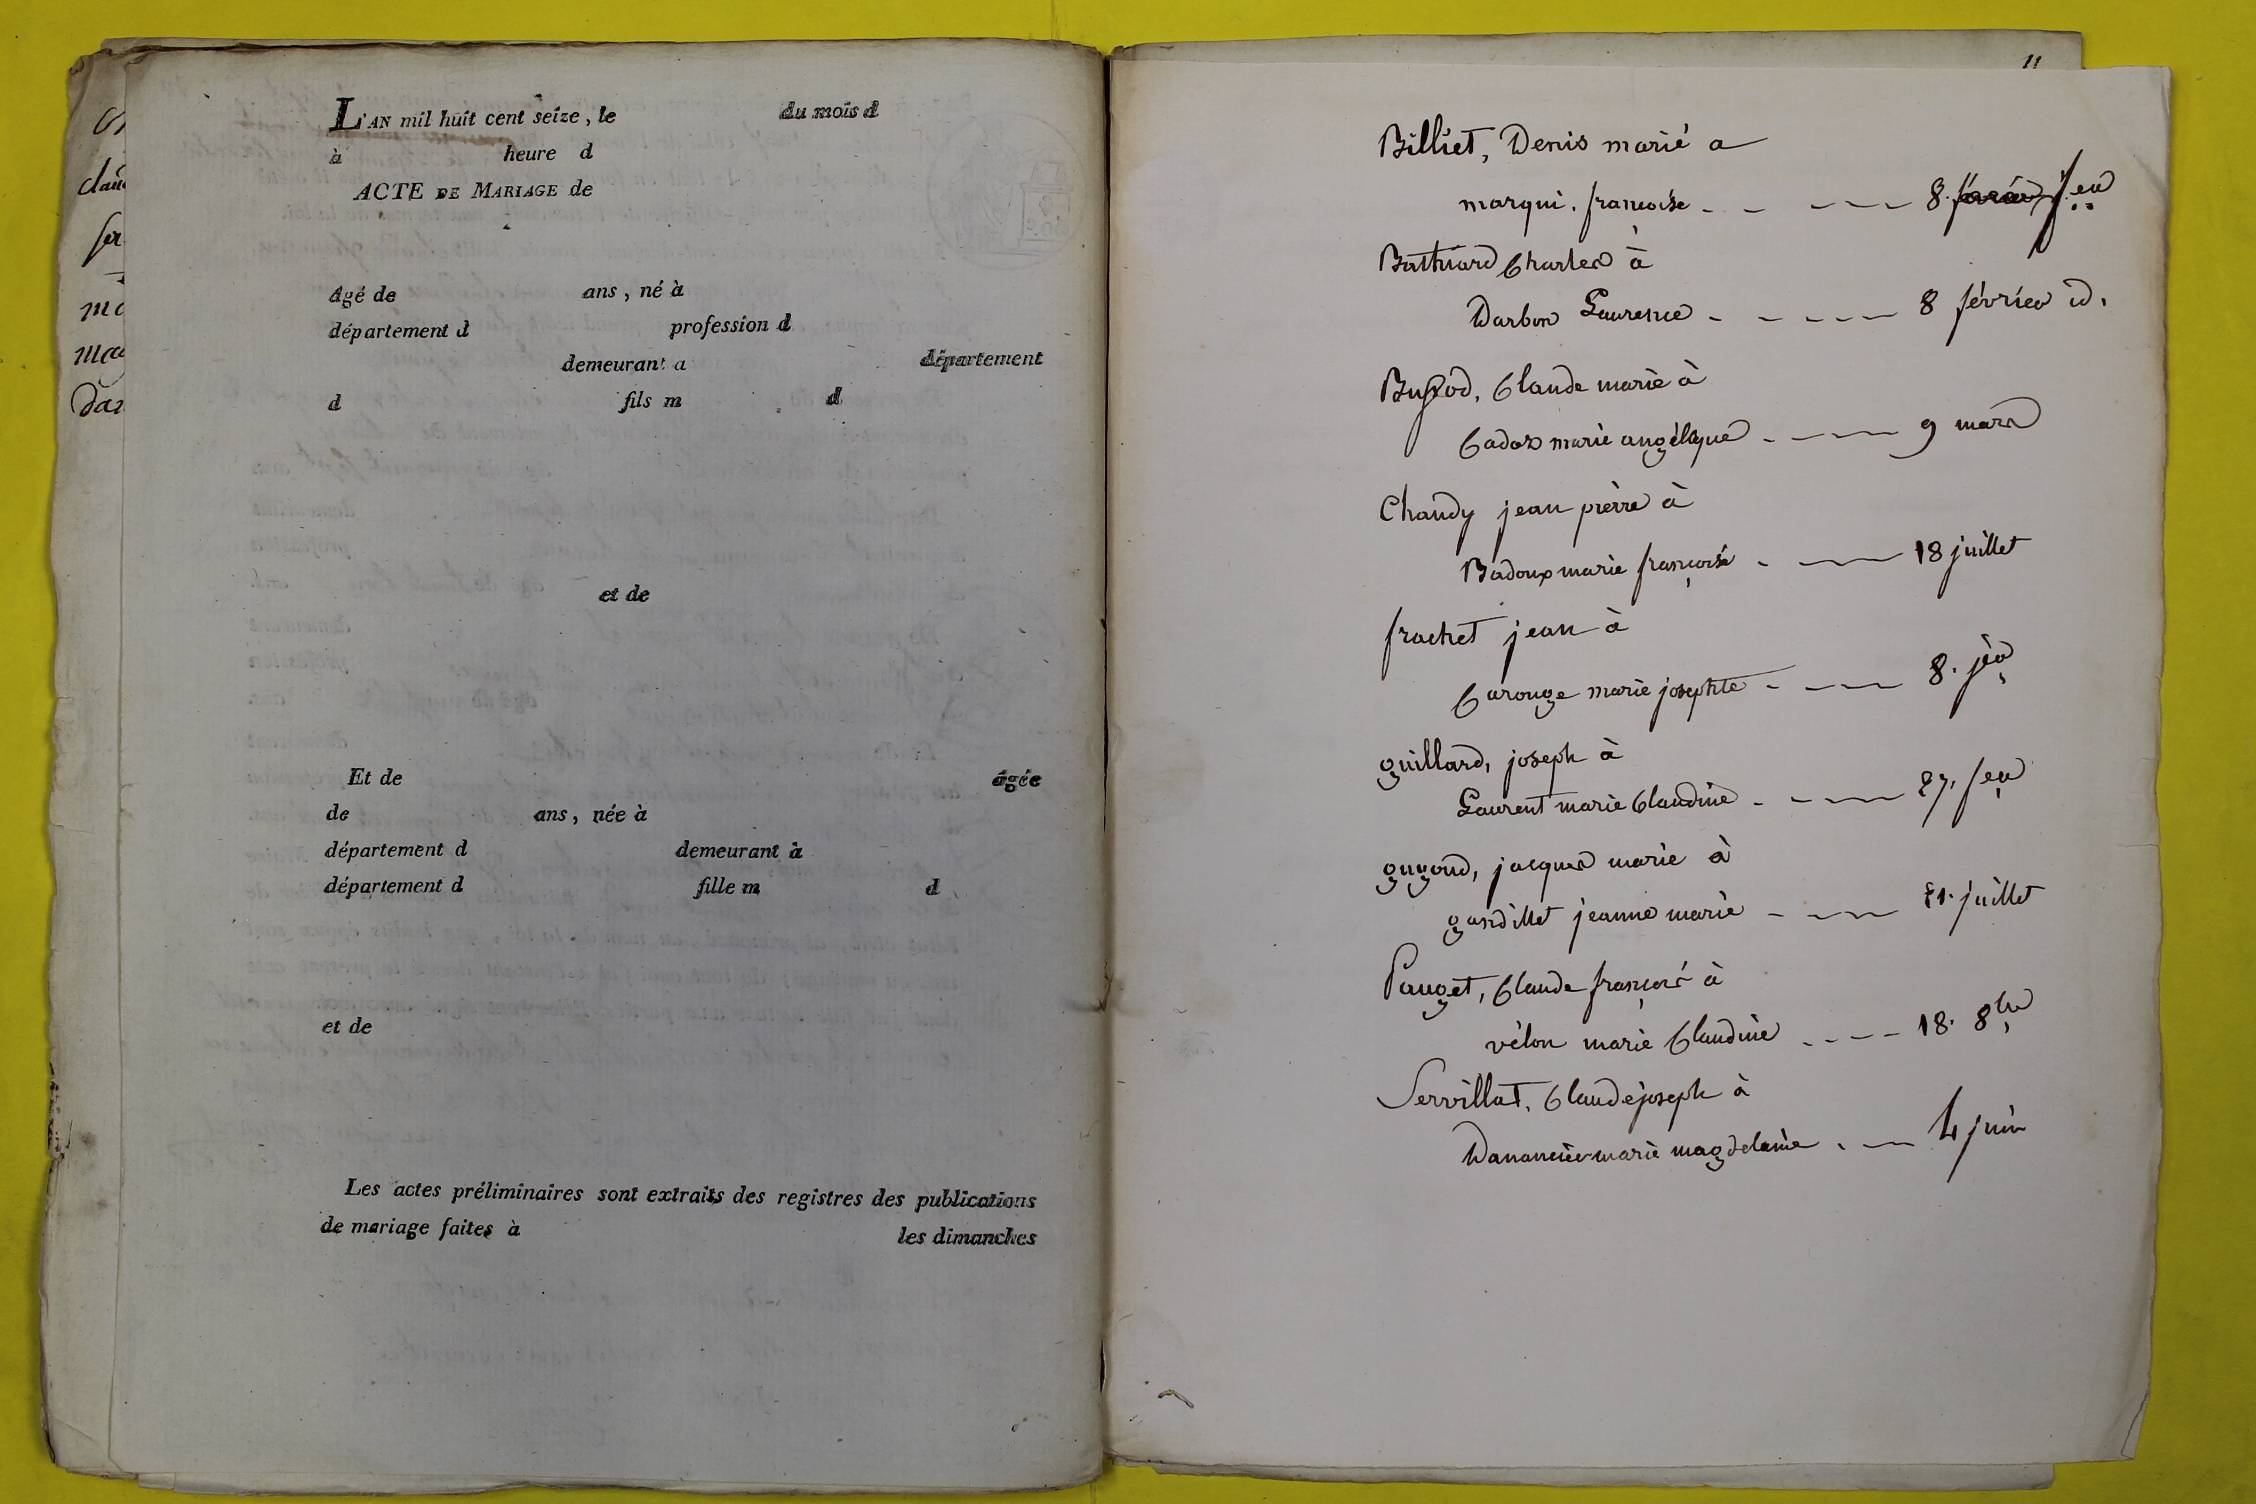 L'AN mil huit cent seize, le du mois d
à heure d
ACTE DE MARIAGE de
âgé de ans, né à
département d profession d
demeurant a département
d fils m d
et de
Et de âgée
de ans, née à
département d demeurant à
département d fille m d
et de
Les actes préliminaires sont extraits des registres des publications
de mariage faites à les dimanches
11
Billiet, Denis marié a
marqui. françoise 8.
Charles à
Darbon Laurence 8 février d.
Claude marie à
Cadoz marie angélique 9 mars
Chaudy jean pierre à
Badoux marie françoise 18 juillet
frachet jean à
Carouge marie josephte 8.
guillard, joseph à
Laurent marie Claudine 27.
guyond, jacques marie à
gardillet jeanne marie 21. juillet
Pauget, Claude françois à
vélon marie Claudine 18. 8bre
Servillat, Claude joseph à
Danancier marie magdelaine 4 juin